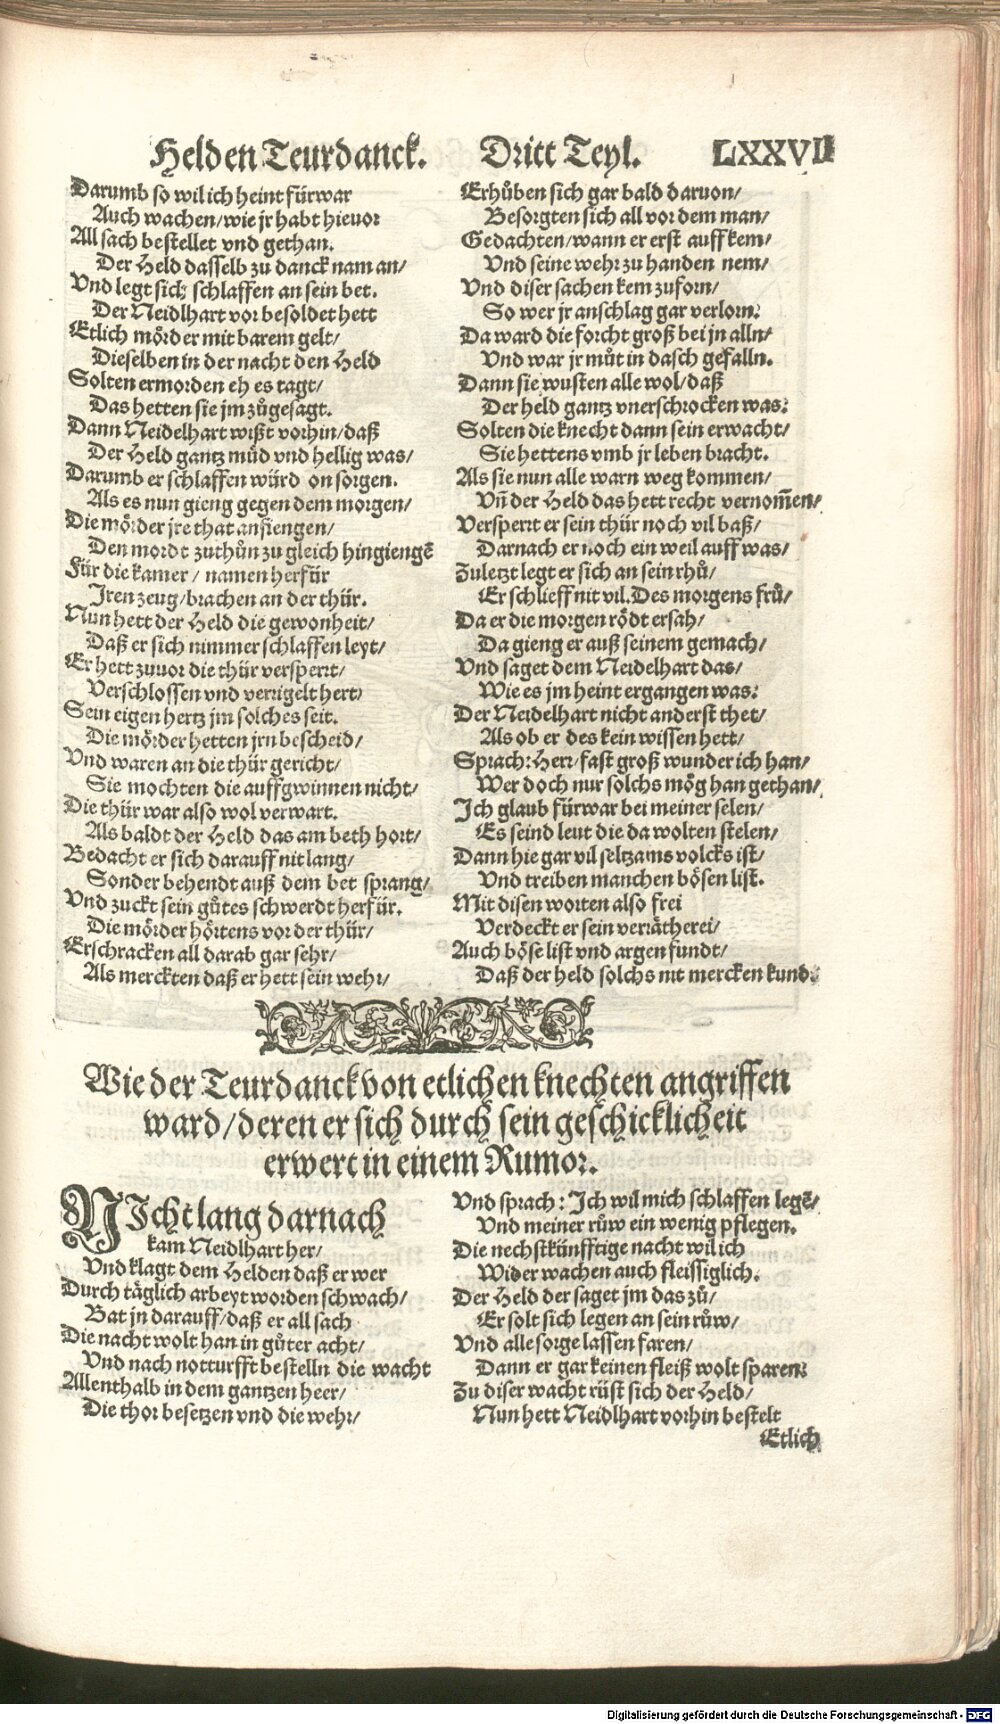 Helden Teurdanck. Dritt Teyl. LXXVII
Darumb so wil ich heint fürwar
Auch wachen/wie jr habt hieuor
All sach bestellet vnd gethan.
Der Held dasselb zu danck nam an/
Vnd legt sich schlaffen an sein bet.
Der Neidlhart vor besoldet hett
Etlich mörder mit barem gelt/
Dieselben in der nacht den Held
Solten ermorden eh es tagt/
Das hetten sie jm zůgesagt.
Dann Neidelhart wißt vorhin/daß
Der Held gantz müd vnd hellig was/
Darumb er schlaffen würd on sorgen.
Als es nun gieng gegen dem morgen/
Die mörder jre that anfiengen/
Den mordt zuthůn zu gleich hingiengē
Für die kamer/ namen herfür
Jren zeug/brachen an der thür.
Nun hett der Held die gewonheit/
Daß er sich nimmer schlaffen leyt/
Er hett zuuor die thür versperrt/
Verschlossen vnd verrigelt hert/
Sein eigen hertz jm solches seit.
Die mörder hetten jrn bescheid/
Vnd waren an die thür gericht/
Sie mochten die auffgwinnen nicht/
Die thür war also wol verwart.
Als baldt der Held das am beth hort/
Bedacht er sich darauff nit lang/
Sonder behendt auß dem bet sprang/
Vnd zuckt sein gůtes schwerdt herfür.
Die mörder hörtens vor der thür/
Erschracken all darab gar sehr/
Als merckten daß er hett sein wehr/
Erhůben sich gar bald daruon/
Besorgten sich all vor dem man/
Gedachten/wann er erst auff kem/
Vnd seine wehr zu handen nem/
Vnd diser sachen kem zuforn/
So wer jr anschlag gar verlorn:
Da ward die forcht groß bei jn alln/
Vnd war jr můt in dasch gefalln.
Dann sie wusten alle wol/daß
Der held gantz vnerschrocken was:
Solten die knecht dann sein erwacht/
Sie hettens vmb jr leben bracht.
Als sie nun alle warn weg kommen/
Vn̄ der Held das hett recht vernom̄en/
Versperrt er sein thür noch vil baß/
Darnach er noch ein weil auff was/
Zuletzt legt er sich an sein rhů/
Er schlieff nit vil. Des morgens frů/
Da er die morgen rödt ersah/
Da gieng er auß seinem gemach/
Vnd saget dem Neidelhart das/
Wie es jm heint ergangen was:
Der Neidelhart nicht anderst thet/
Als ob er des kein wissen hett/
Sprach: Herr/fast groß wunder ich han/
Wer doch nur solchs mög han gethan/
Jch glaub fürwar bei meiner selen/
Es seind leut die da wolten stelen/
Dann hie gar vil seltzams volcks ist/
Vnd treiben manchen bösen list.
Mit disen worten also frei
Verdeckt er sein verrätherei/
Auch böse list vnd argen fundt/
Daß der held solchs nit mercken kund.
Wie der Teurdanck von etlichen knechten angriffen
ward/deren er sich durch sein geschicklicheit
erwert in einem Rumor.
NJcht lang darnach
kam Neidlhart her/
Vnd klagt dem Helden daß er wer
Durch täglich arbeyt worden schwach/
Bat jn darauff/daß er all sach
Die nacht wolt han in gůter acht/
Vnd nach notturfft bestelln die wacht
Allenthalb in dem gantzen heer/
Die thor besetzen vnd die wehr/
Vnd sprach: Jch wil mich schlaffen legē/
Vnd meiner růw ein wenig pflegen.
Die nechstkünfftige nacht wil ich
Wider wachen auch fleissiglich.
Der Held der saget jm das zů/
Er solt sich legen an sein růw/
Vnd alle sorge lassen faren/
Dann er gar keinen fleiß wolt sparen:
Zu diser wacht rüst sich der Held/
Nun hett Neidlhart vorhin bestelt
Etlich
Digitalisierung gefördert durch die Deutsche Forschungsgemeinschaft - DFG